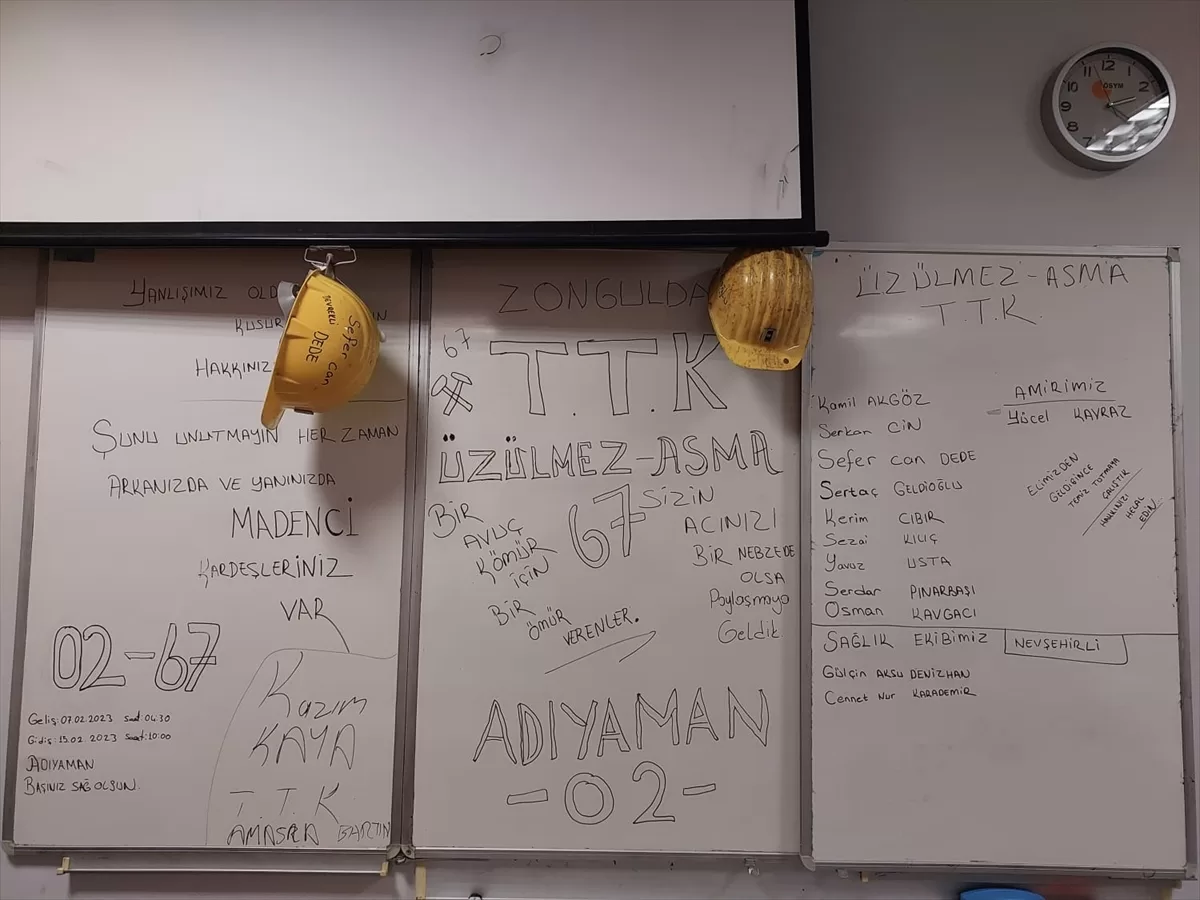 YANLIŞIMIZ
HAKKINIZ
ŞUNU UNUTMAYIN HER ZAMAN
ARKANIZDA VE YANINIZDA
MADENCİ
KARDEŞLERİNİZ
VAR
02-67
Geliş: 07.02.2023 saat: 04.30
Gidiş: 15.02.2023 saat: 10:00
ADIYAMAN
BAŞINIZ SAĞ OLSUN.
Kazım
KAYA
T.T.K
AMASRA BARTIN
Sefer Can
DEDE
67
T.T.K
ÜZÜLMEZ-ASMA
BİR
AVUÇ
KÖMÜR
İÇİN
BİR
ÖMÜR
VERENLER.
67
SİZİN
ACINIZI
BİR NEBZEDE
OLSA
Paylaşmaya
Geldik
ADIYAMAN
-02-
ÜZÜLMEZ-ASMA
T.T.K.
Kamil AKGÖZ
Serkan CİN
Sefer can DEDE
Sertaç GELDİOĞLU
Kerim CIBIR
Sezai KILIÇ
Yavuz USTA
Serdar PINARBAŞI
Osman KAVGACI
AMİRİMİZ
Yücel KAVRAZ
ELİMİZDEN
GELDİĞİNCE
TEMİZ TUTMAYA
ÇALIŞTIK
HAKKINIZI
HELAL
EDİN...
SAĞLIK EKİBİMİZ NEVŞEHİRLİ
Gülçin AKSU DENİZHAN
Cennet Nur KARADEMİR
ÖSYM
12
1
2
8
9
10
11